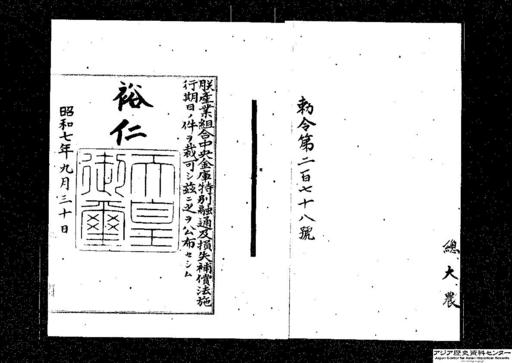 總、大、農
勅令第二百七十八號
朕産業組合中央金庫特別融通及損失補償法施
行期日ノ件ヲ裁可シ茲ニ之ヲ公布セシム
裕仁
天皇
御璽
昭和七年九月三十日
アジア歴史資料センター
Japan Center for Asian Historical Records